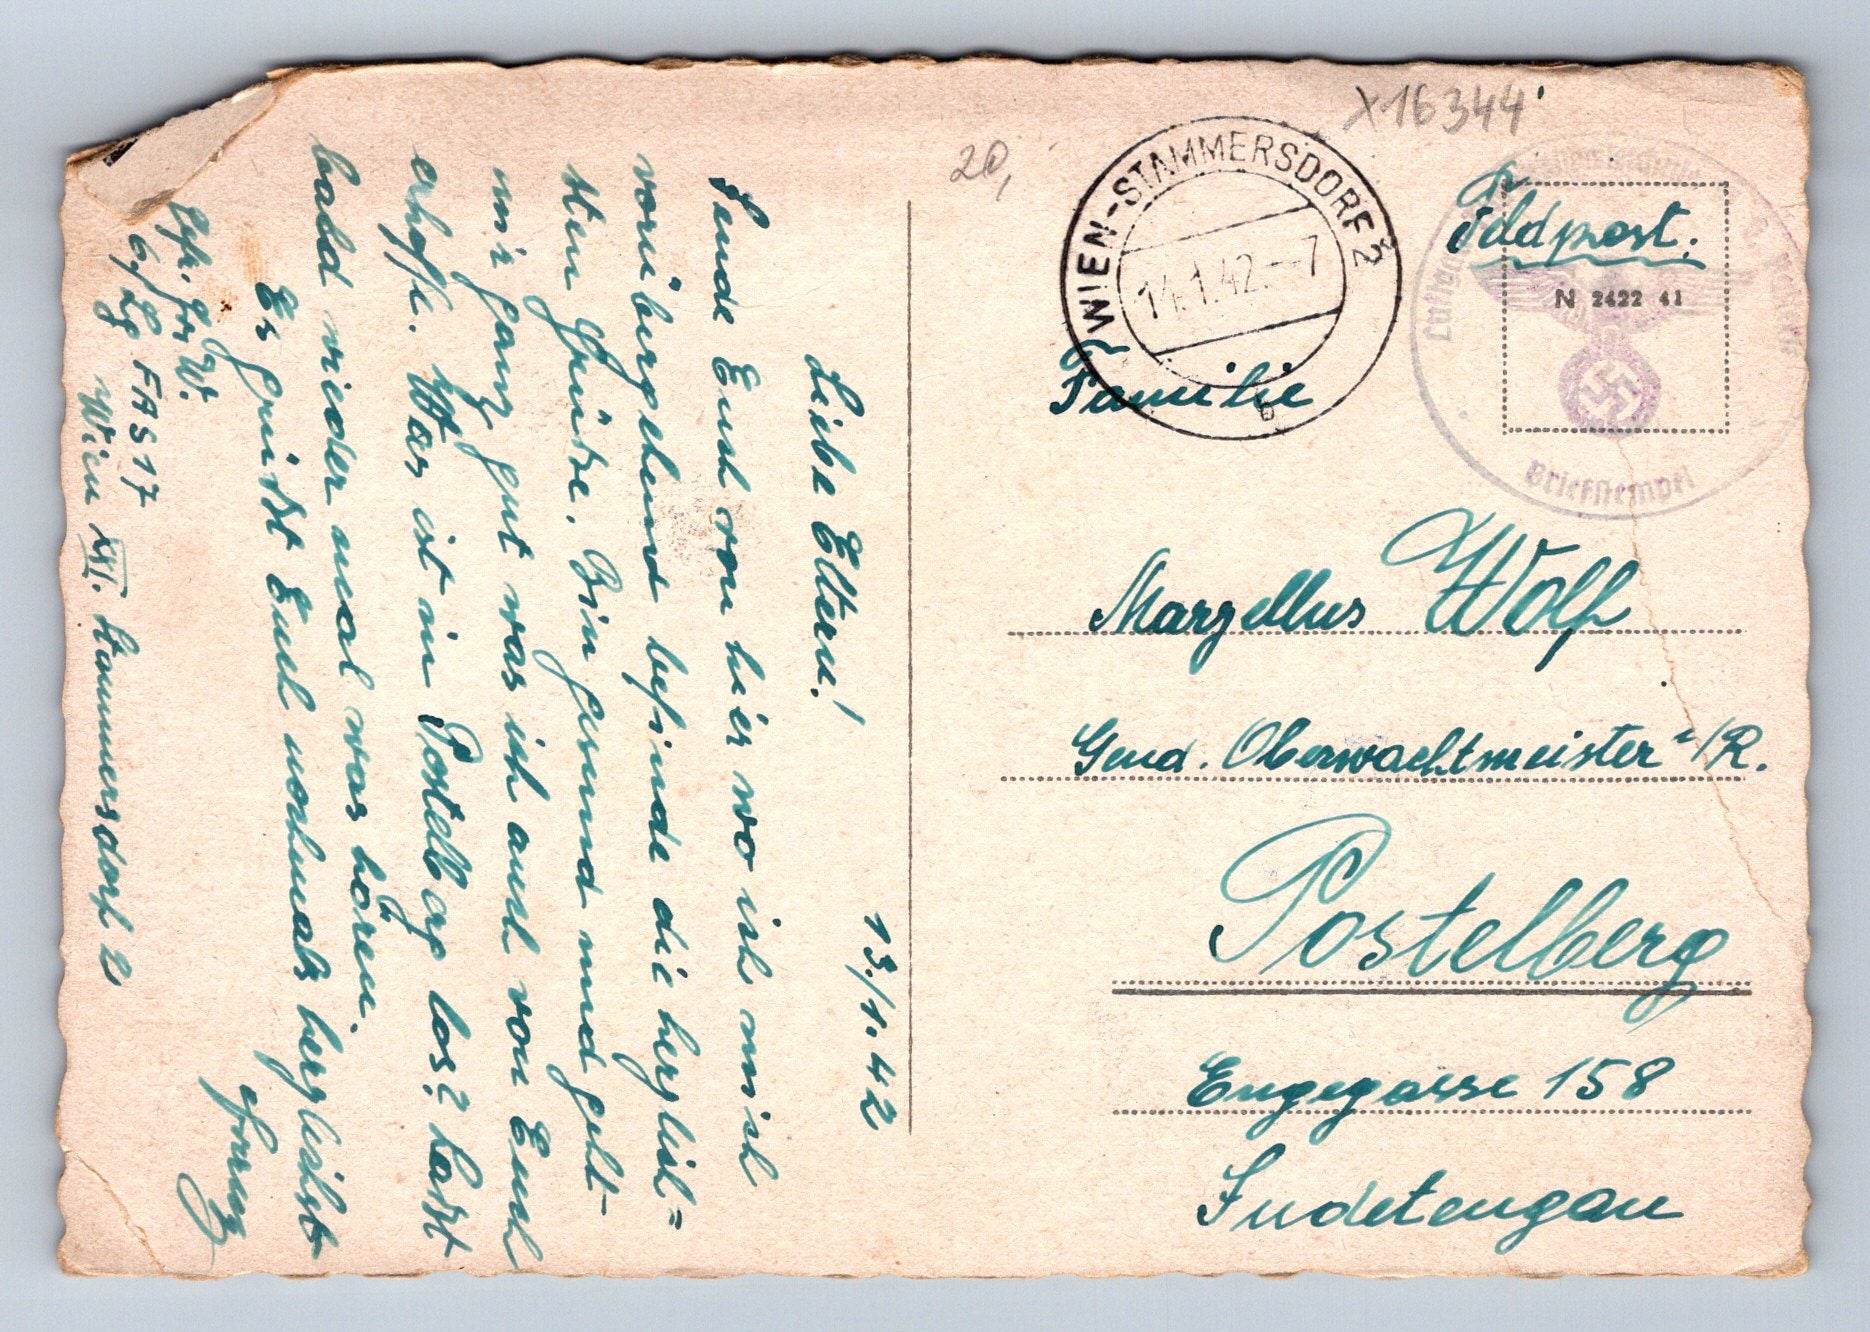 13./1.42
Liebe Eltern!
Sende Euch von hier wo ich mich
vorübergehend befinde die herzlich=
sten Grüße. Bin gesund und geht
mir ganz gut was ich auch von Euch
erhoffe. Was ist in Postelberg los? Laßt
bald wieder mal was hören.
Es grüßt Euch nochmals herzlichst
Franz
Gefr. Frz. W.
6/Lg FAS 17
Wien XXI. Stammersdorf 2
20,
X16344
WIEN-STAMMERSDORF 2
14.1.42.--7
b
Feldpost.
N 2422 41
Briefstempel
Familie
Marzellus Wolf
Gend. Oberwachtmeister i/R.
Postelberg
Engegasse 158
Sudetengau